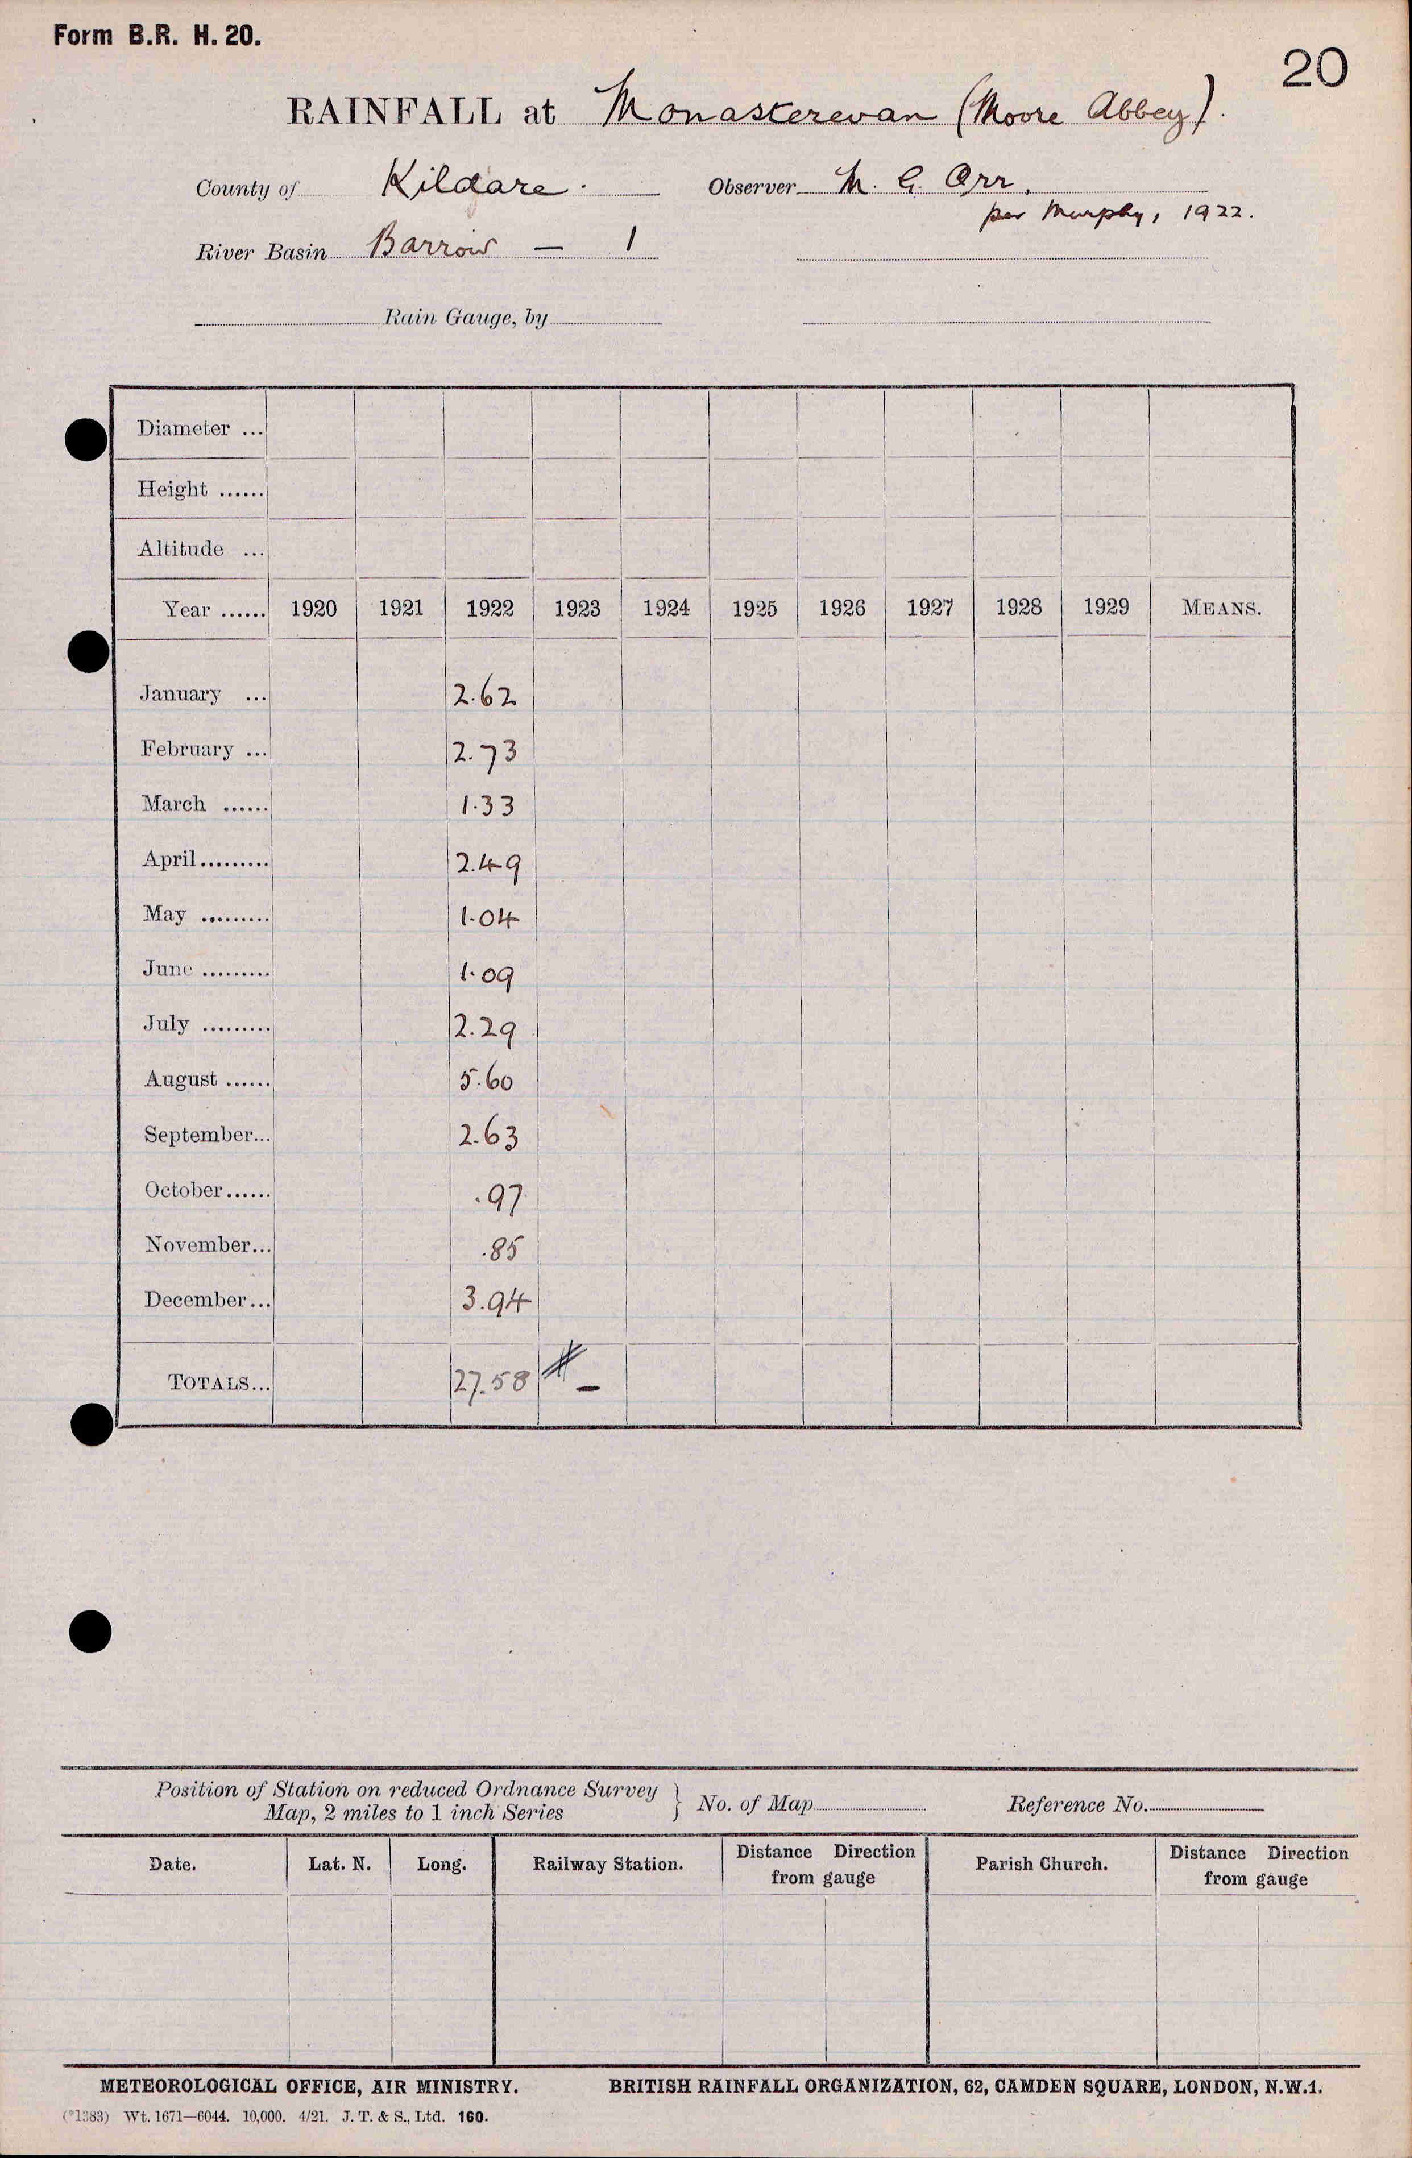 Form B.R. H. 20.
20
RAINFALL at Monasterevan (Moore Abbey).
County of Kildare. Observer M. G. Orr.
per Murphy, 1922.
River Basin Barrow — 1
Rain Gauge, by
Diameter ...
Height ......
Altitude ...
Year ...... 1920 1921 1922 1923 1924 1925 1926 1927 1928 1929 MEANS.
January ... 2.62
February ... 2.73
March ...... 1.33
April......... 2.49
May ......... 1.04
June ......... 1.09
July ......... 2.29
August ...... 5.60
September... 2.63
October...... .97
November... .85
December... 3.94
TOTALS... 27.58 # —
Position of Station on reduced Ordnance Survey
Map, 2 miles to 1 inch Series } No. of Map Reference No.
Date. Lat. N. Long. Railway Station. Distance Direction from gauge Parish Church. Distance Direction from gauge
METEOROLOGICAL OFFICE, AIR MINISTRY. BRITISH RAINFALL ORGANIZATION, 62, CAMDEN SQUARE, LONDON, N.W.1.
(*1383) Wt. 1671—6044. 10,000. 4/21. J. T. & S., Ltd. 160.